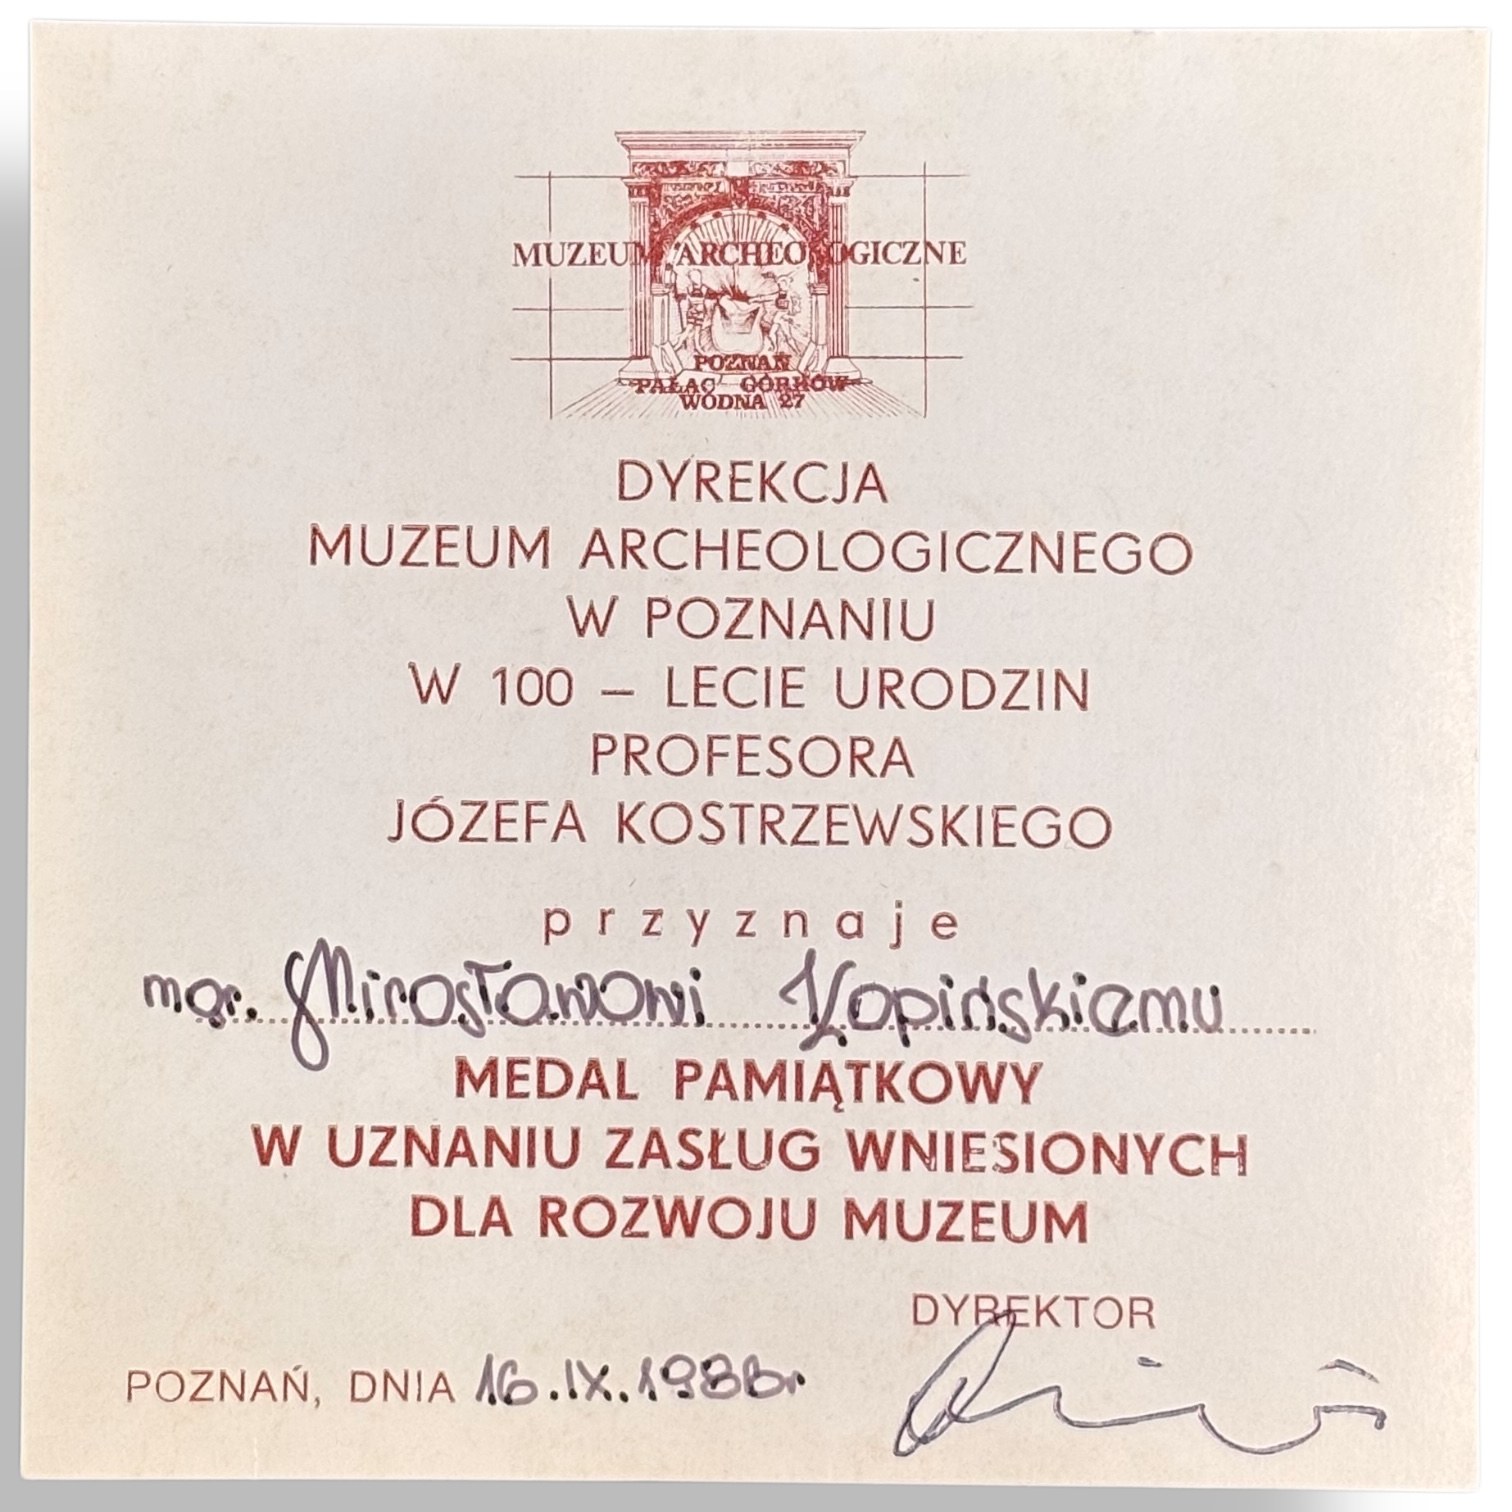 MUZEUM ARCHEOLOGICZNE
POZNAŃ
PAŁAC GÓRKÓW
WODNA 27
DYREKCJA
MUZEUM ARCHEOLOGICZNEGO
W POZNANIU
W 100 – LECIE URODZIN
PROFESORA
JÓZEFA KOSTRZEWSKIEGO
przyznaje
mgr. Mirosławowi Kopińskiemu
MEDAL PAMIĄTKOWY
W UZNANIU ZASŁUG WNIESIONYCH
DLA ROZWOJU MUZEUM
DYREKTOR
POZNAŃ, DNIA 16.IX.1988r